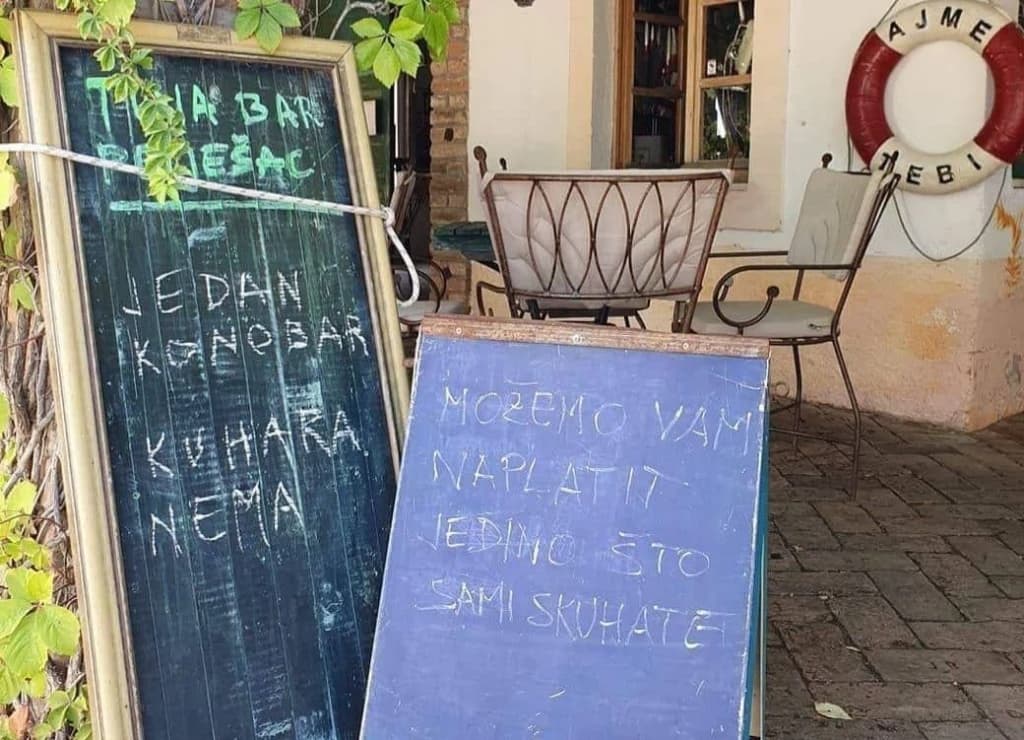 BAR
PELJEŠAC
JEDAN
KONOBAR
KUHARA
NEMA
MOŽEMO VAM
NAPLATIT
JEDINO ŠTO
SAMI SKUHATE
AJME
TEBI